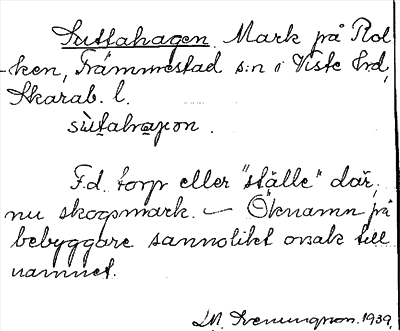 Suttahagen. Mark på Rol-
ken, Främmestad s:n i Viste hrd,
Skarab. l.
F.d. torp eller "ställe" där,
nu skogsmark. — Öknamn på
bebyggare sannolikt orsak till
namnet.
1939.